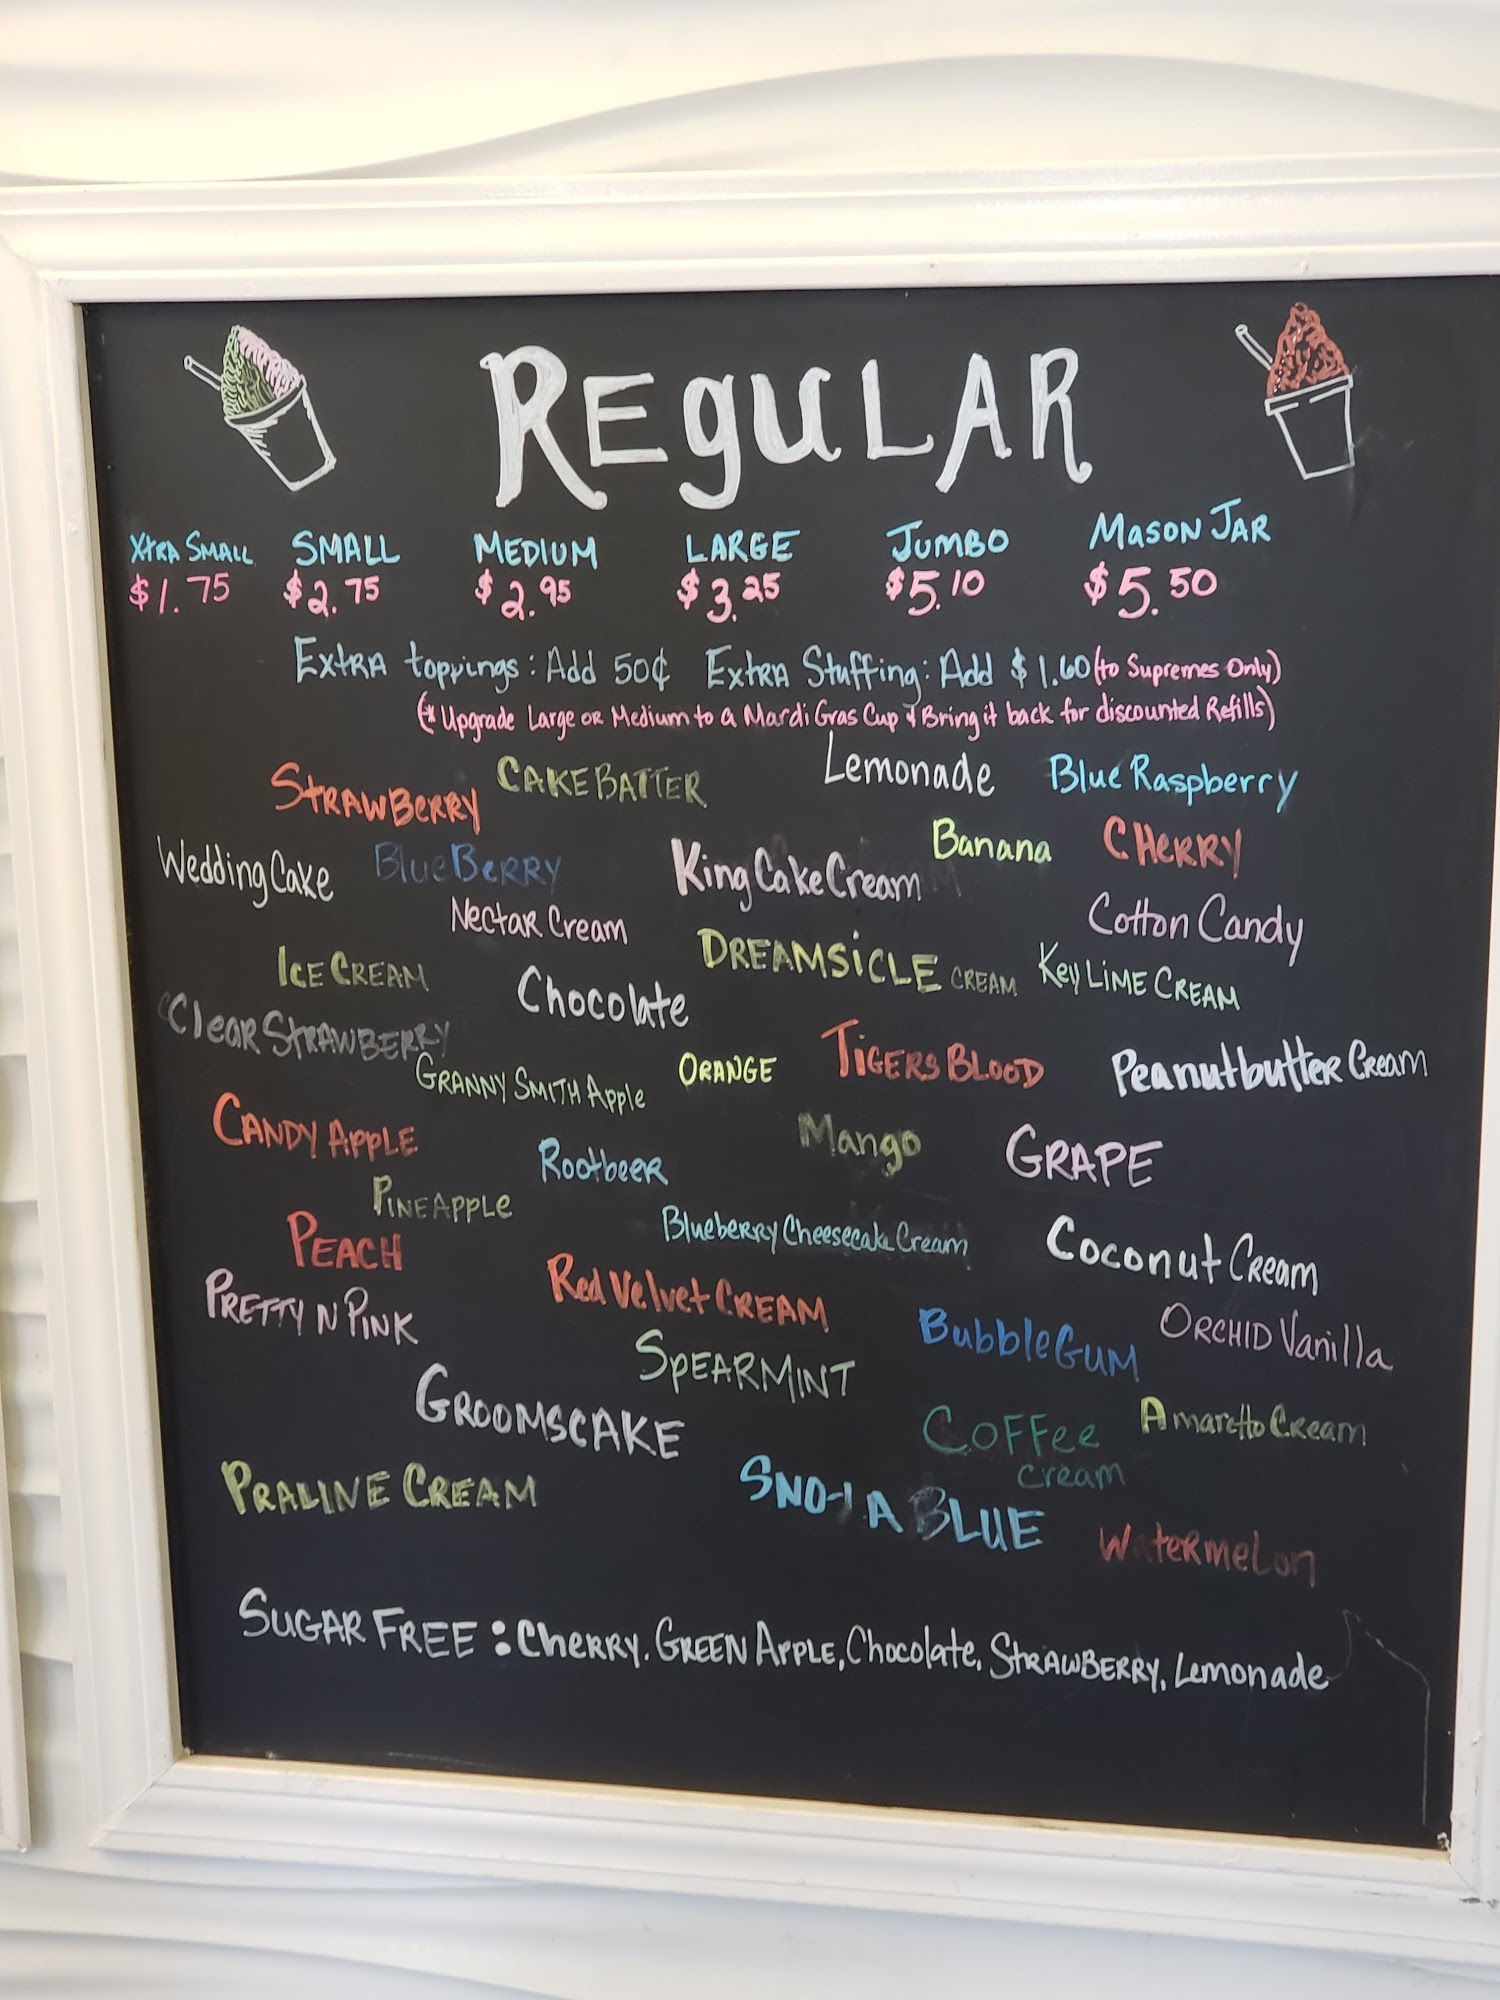 REgULAR
XtRA SMALL SMALL MEDIUM LARGE JUMBO MASON JAR
$1.75 $2.75 $2.95 $3.25 $5.10 $5.50
ExtRA toppings: Add 50¢ ExtRA Stuffing: Add $1.60 (to Supremes Only)
(* Upgrade Large or Medium to a Mardi Gras Cup & Bring it back for discounted Refills)
STRAWBeRRY CAKE BATTER Lemonade Blue Raspberry
Wedding Cake BlueBeRRY King Cake Cream Banana CHERRY
Nectar Cream Cotton Candy
ICE CREAM Chocolate DREAMSiCLE CREAM Key LIME CREAM
Clear STRAWBERRY
GRANNY SMITH Apple ORANGE TIGERS BLOOD Peanutbutter Cream
CANDY APPLE Rootbeer Mango GRAPE
PINEAPPLe
PEACH Blueberry Cheesecake Cream Coconut Cream
PRETTY N PINK Red Velvet CREAM BubbleGUM ORCHID Vanilla
SPEARMINT
GROOMSCAKE COFFee cream Amaretto Cream
PRALINE CREAM SNO-LA BLUE Watermelon
SUGAR FREE: Cherry. GREEN APPLE, Chocolate, STRAWBERRY, Lemonade